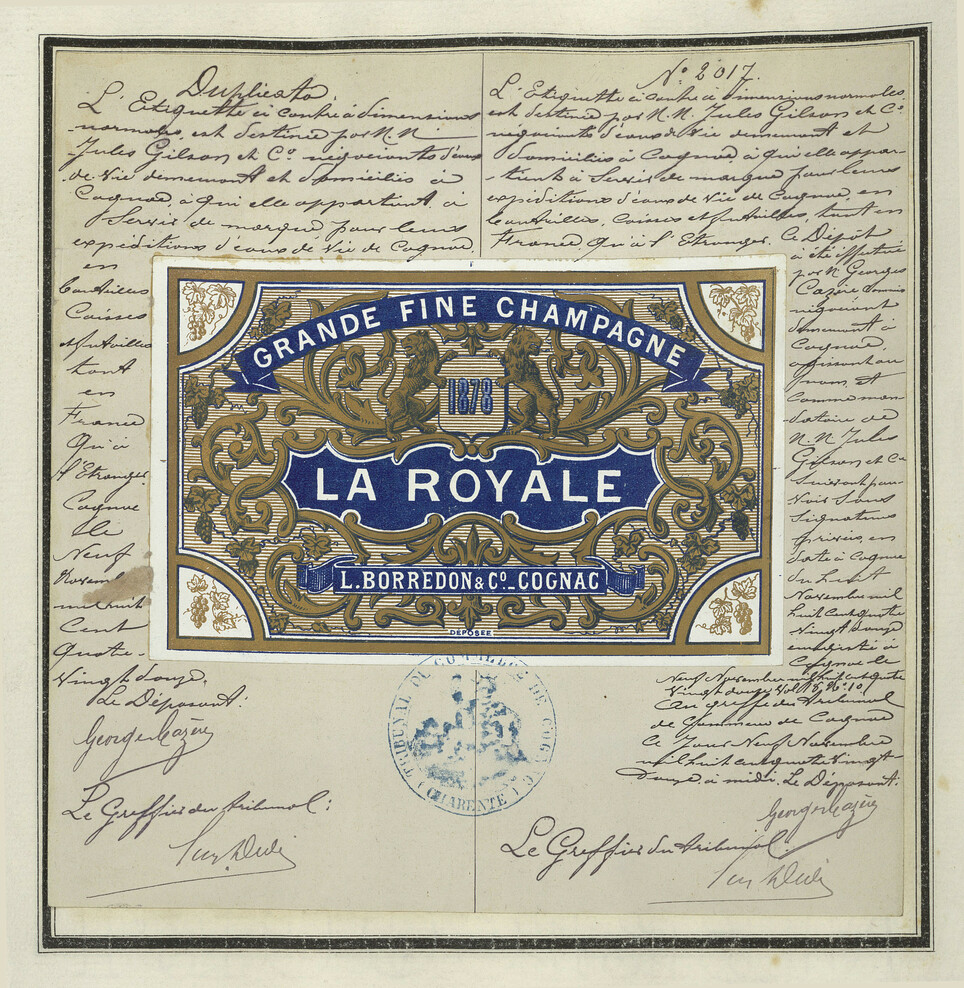 Duplicata.
L'Etiquette ci contre à dimensions
normales, est destinée par M.M.
Jules Gilson et Cº négociants d'eaux
de vie demeurant et domiciliés à
Cognac, à qui elle appartient, à
Servir de marque pour leurs
expéditions d'eaux de Vie de Cognac
en
bouteilles
Caisses
et futailles
tant
en
France
Qu'à
l'Etranger
Cognac
le
Neuf
Novembre
mil huit
Cent
Quatre
Vingt douze.
Le Déposant:
Georges Cazère
Le Greffier du tribunal:
Nº 2017.
L'Etiquette ci contre à dimensions normales
est destinée par M.M. Jules Gilson et Cº
négociants d'eaux de Vie demeurant et
domiciliés à Cognac, à qui elle appar-
tient à Servir de marque pour leurs
expéditions d'eaux de Vie de Cognac, en
bouteilles, Caisses et futailles, tant en
France Qu'à l'Etranger. Ce Dépôt
a été effectué
par M. Georges
Cazère
négociant
demeurant à
Cognac,
agissant au
nom et
Comme man-
dataire de
M.M. Jules
Gilson et Cº
Suivant pou-
voir Sous
Signatures
privées, en
date à Cognac
du huit
Novembre mil
huit cent quatre
Vingt douze
enregistré à
Cognac le
Neuf Novembre mil huit cent quatre
Vingt douze Vol 18, Nº 10
Au greffe du Tribunal
de Commerce de Cognac
Ce Jour Neuf Novembre
mil huit cent quatre Vingt
Douze à midi. Le Déposant.
Georges Cazère
Le Greffier du tribunal.
GRANDE FINE CHAMPAGNE
1878
LA ROYALE
L. BORREDON & Cº_COGNAC
DÉPOSÉE
TRIBUNAL DU COMMERCE DE COGNAC
(CHARENTE)